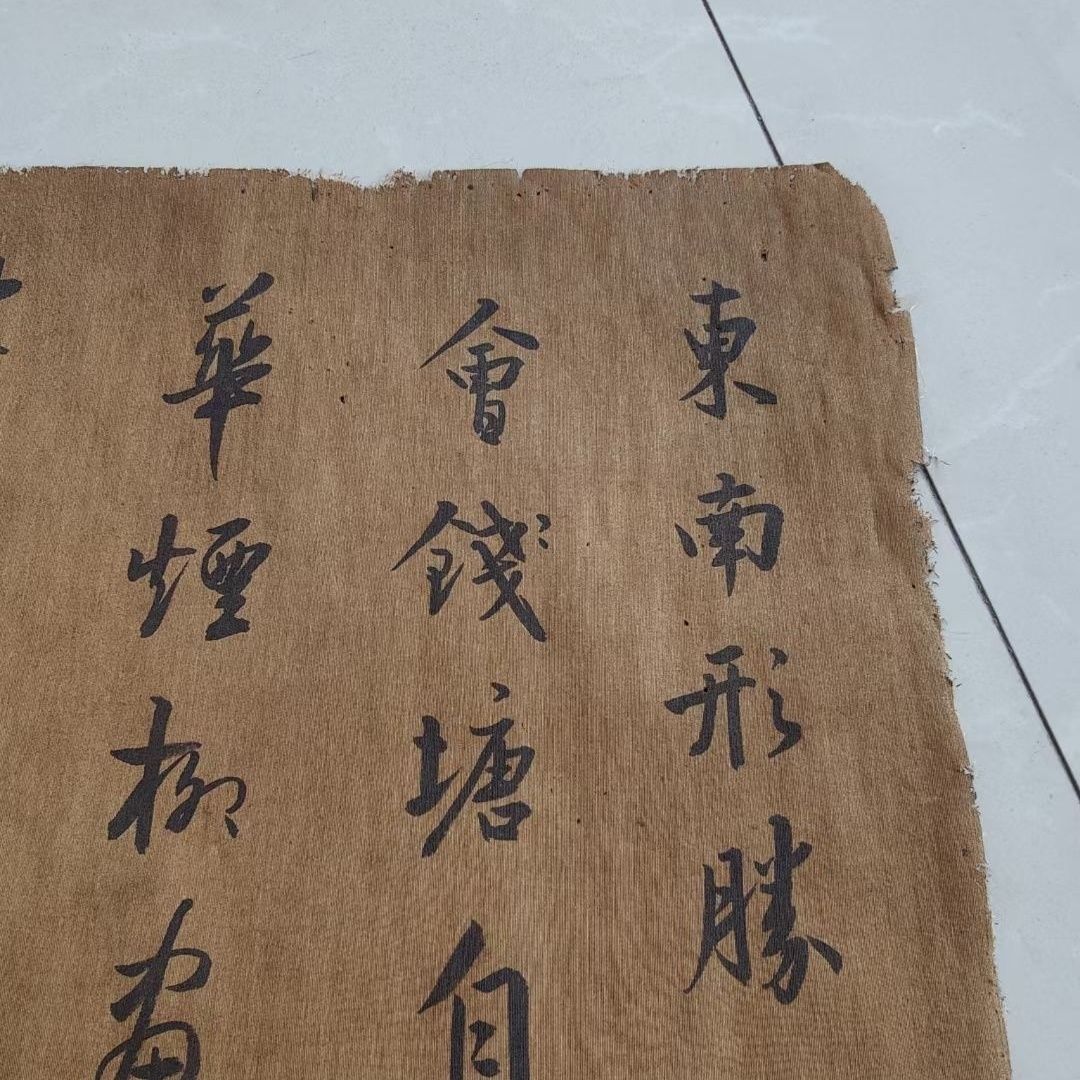 東南形勝
會錢塘自
華煙柳畫